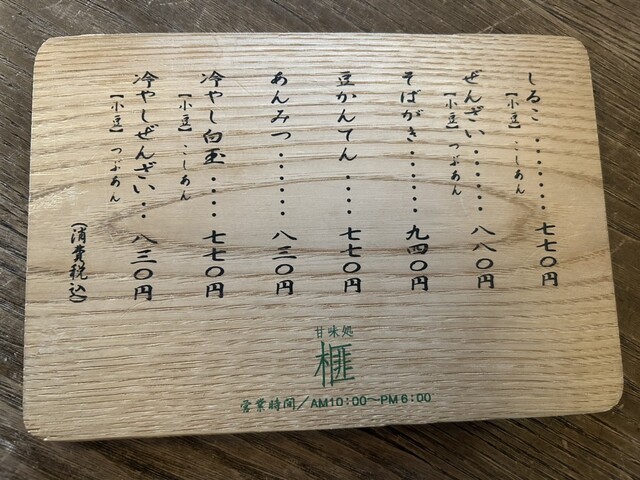 しるこ‥‥‥‥七七〇円
【小豆】こしあん
ぜんざい‥‥‥‥八八〇円
【小豆】つぶあん
そばがき‥‥‥‥九四〇円
豆かんてん‥‥七七〇円
あんみつ‥‥‥‥八三〇円
冷やし白玉‥‥七七〇円
【小豆】こしあん
冷やしぜんざい‥‥八三〇円
【小豆】つぶあん
(消費税込)
甘味処
榧
営業時間/AM10:00〜PM6:00